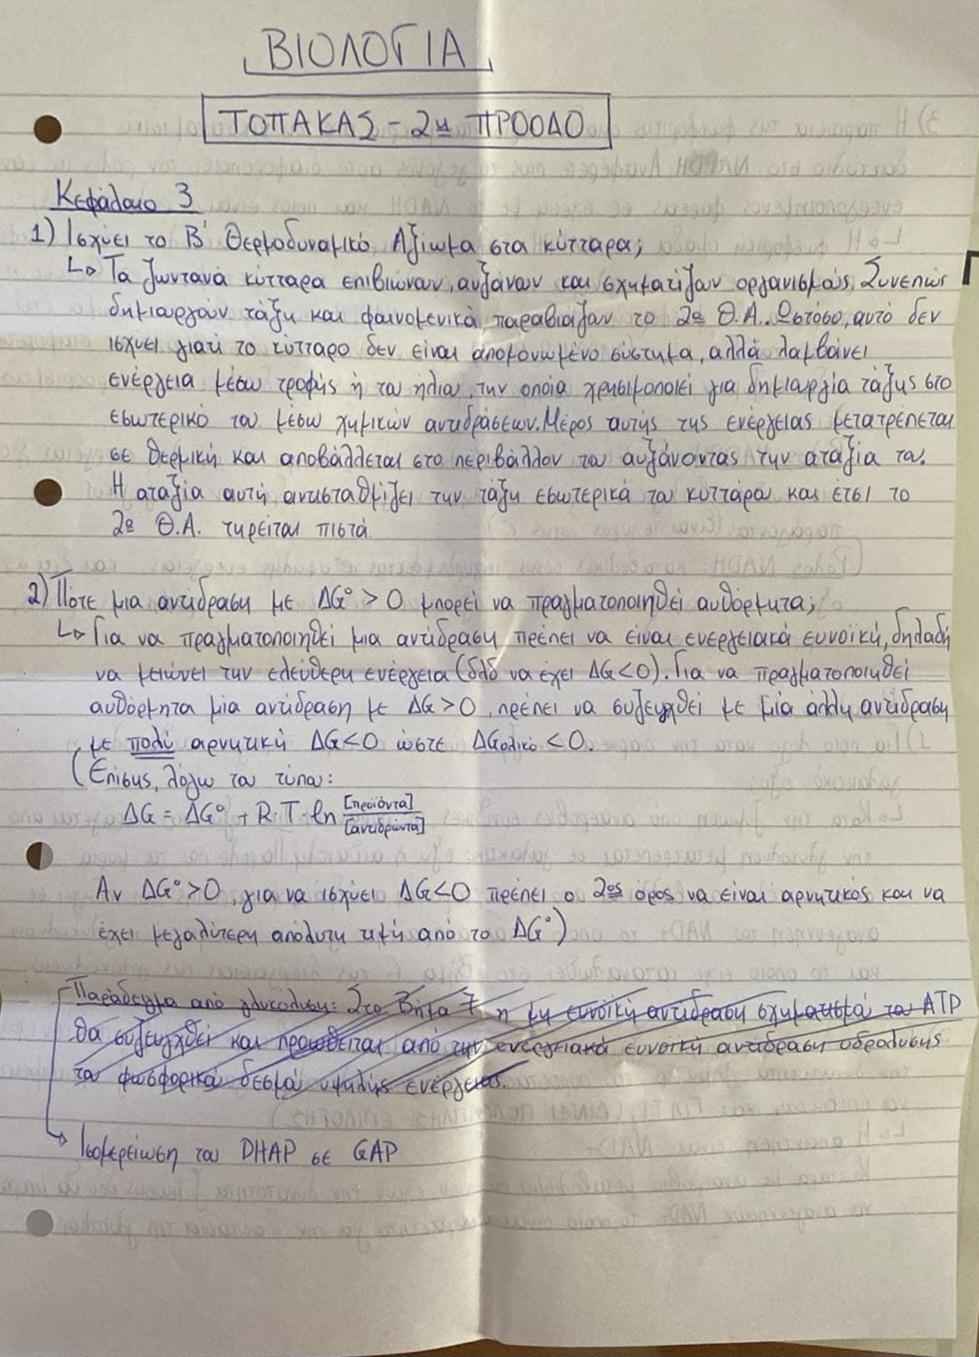 ΒΙΟΛΟΓΙΑ
ΤΟΠΑΚΑΣ - 2η ΠΡΟΟΔΟ
Κεφάλαιο 3
1) Ισχύει το Β' Θερμοδυναμικό Αξίωμα στα κύτταρα;
↳ Τα ζωντανά κύτταρα επιβιώνουν, αυξάνουν και σχηματίζουν οργανισμούς. Συνεπώς
δημιουργούν τάξη και φαινομενικά παραβιάζουν το 2ο Θ.Α. Ωστόσο, αυτό δεν
ισχύει γιατί το κύτταρο δεν είναι απομονωμένο σύστημα, αλλά λαμβάνει
ενέργεια μέσω τροφής ή του ηλίου, την οποία χρησιμοποιεί για δημιουργία τάξης στο
εσωτερικό του μέσω χημικών αντιδράσεων. Μέρος αυτής της ενέργειας μετατρέπεται
σε θερμική και αποβάλλεται στο περιβάλλον του αυξάνοντας την αταξία του.
Η αταξία αυτή αντισταθμίζει την τάξη εσωτερικά του κυττάρου και έτσι το
2ο Θ.Α. τηρείται πιστά
2) Πότε μια αντίδραση με ΔG° > 0 μπορεί να πραγματοποιηθεί αυθόρμητα;
↳ Για να πραγματοποιηθεί μια αντίδραση πρέπει να είναι ενεργειακά ευνοϊκή, δηλαδή
να μειώνει την ελεύθερη ενέργεια (δλδ να έχει ΔG<0). Για να πραγματοποιηθεί
αυθόρμητα μια αντίδραση με ΔG>0, πρέπει να συζευχθεί με μία άλλη αντίδραση
με πολύ αρνητική ΔG<0 ώστε ΔGολικό <0.
(Επίσης, λόγω του τύπου:
ΔG = ΔG° + R·T·ln [προϊόντα]
[αντιδρώντα]
Αν ΔG°>0, για να ισχύει ΔG<0 πρέπει ο 2ος όρος να είναι αρνητικός και να
έχει μεγαλύτερη απόλυτη τιμή από το ΔG°)
Παράδειγμα από γλυκόλυση: Στο Βήμα 7, η μη ευνοϊκή αντίδραση σχηματισμού του ATP
θα συζευχθεί και προωθείται από την ενεργειακά ευνοϊκή αντίδραση υδρόλυσης
του φωσφορικού δεσμού υψηλής ενέργειας.
↳ Ισομερείωση του DHAP σε GAP